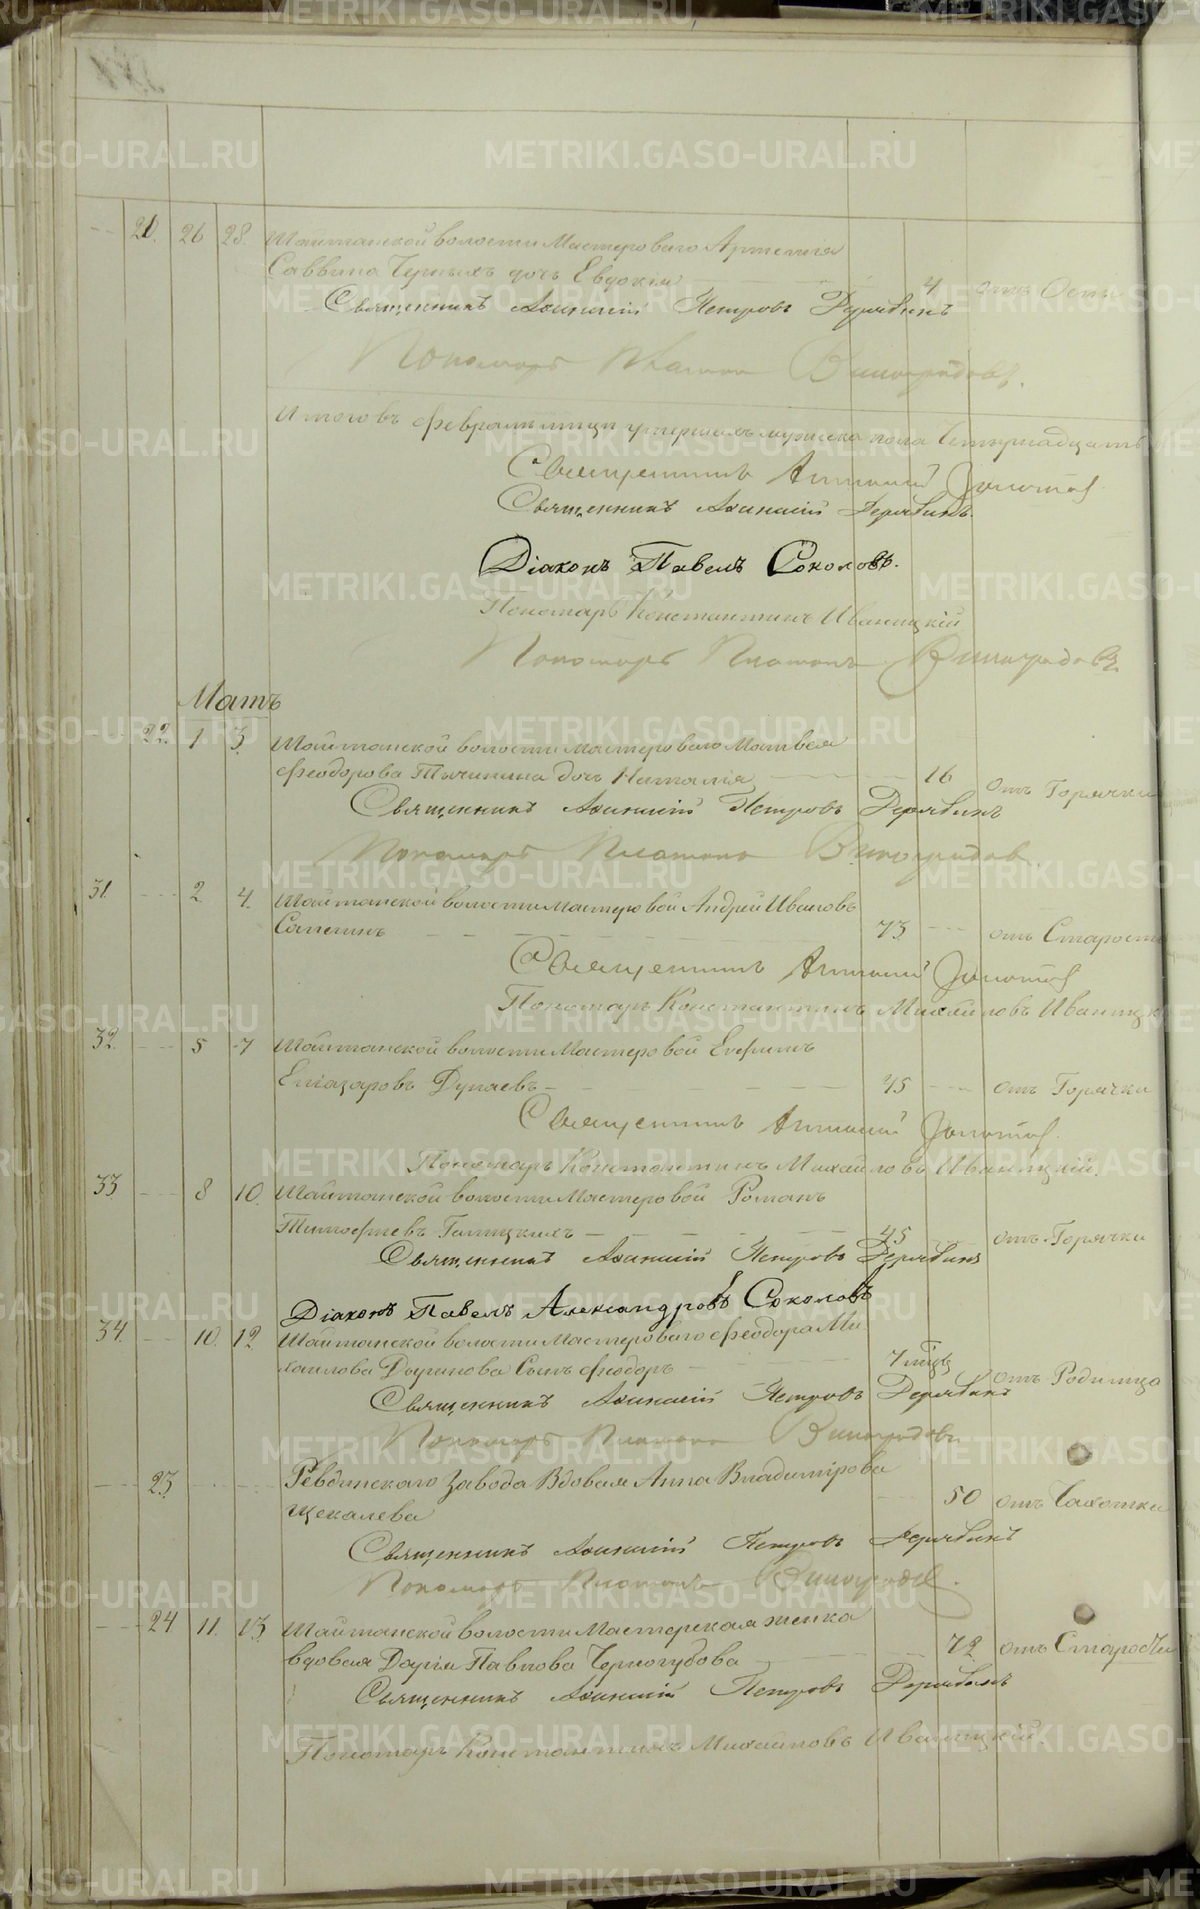 21. 26 28. Шайтанской волости Мастероваго Артемия
Саввина Черныхъ дочь Евдокия 4 отъ Оспы
Священникъ Афанасій Петровъ Дерябинъ
Пономарь Платонъ Виноградовъ.
Итого въ феврале месяце умершихъ мужеска пола Четырнадцать
Священникъ Золотов
Священникъ Афанасій Дерябинъ.
Діаконъ Павелъ Соколовъ.
Пономарь Константинъ Иваницкій
Пономарь Платонъ Виноградовъ
Мартъ
22. 1 3. Шайтанской волости мастероваго Матвея
Феодорова Тычинина дочь Наталія 16 отъ Горячки
Священникъ Афанасій Петровъ Дерябинъ
Пономарь Платонъ Виноградов
31. 2. 4. Шайтанской волости мастеровой Андрей Ивановъ
73. отъ Старости
Священникъ Золотов
Пономарь Константинъ Михайловъ Иваницк
32. 5 7 Шайтанской волости Мастеровой Ефимъ
Елиазаровъ Дунаевъ 45 отъ Горячки
Священникъ Золотов.
Пономарь Константинъ Михайловъ Иваницкій.
33 8 10. Шайтанской волости Мастеровой Романъ
Тимофеевъ Галицкихъ 45 отъ Горячки
Священникъ Афанасій Петровъ Дерябинъ
Діаконъ Павелъ Александровъ Соколовъ
34. 10. 12 Шайтанской волости Мастероваго Феодора Ми-
хаилова Сынъ Феодоръ 7 отъ Родимца
Священникъ Афанасій Петровъ Дерябинъ
Пономарь Платонъ Виноградовъ
23. Ревдинскаго Завода Вдовая Анна Владимірова
Щекалева 50 отъ Чахотки
Священникъ Афанасій Петровъ Дерябинъ
Пономарь Платонъ Виноградов.
24 11. 13. Шайтанской волости Мастерская женка
вдовая Дарія Павлова Черногубова 72 отъ Старости
Священникъ Афанасій Петровъ Дерябинъ
Пономарь Константинъ Михайловъ Иваницкій
METRIKI.GASO-URAL.RU